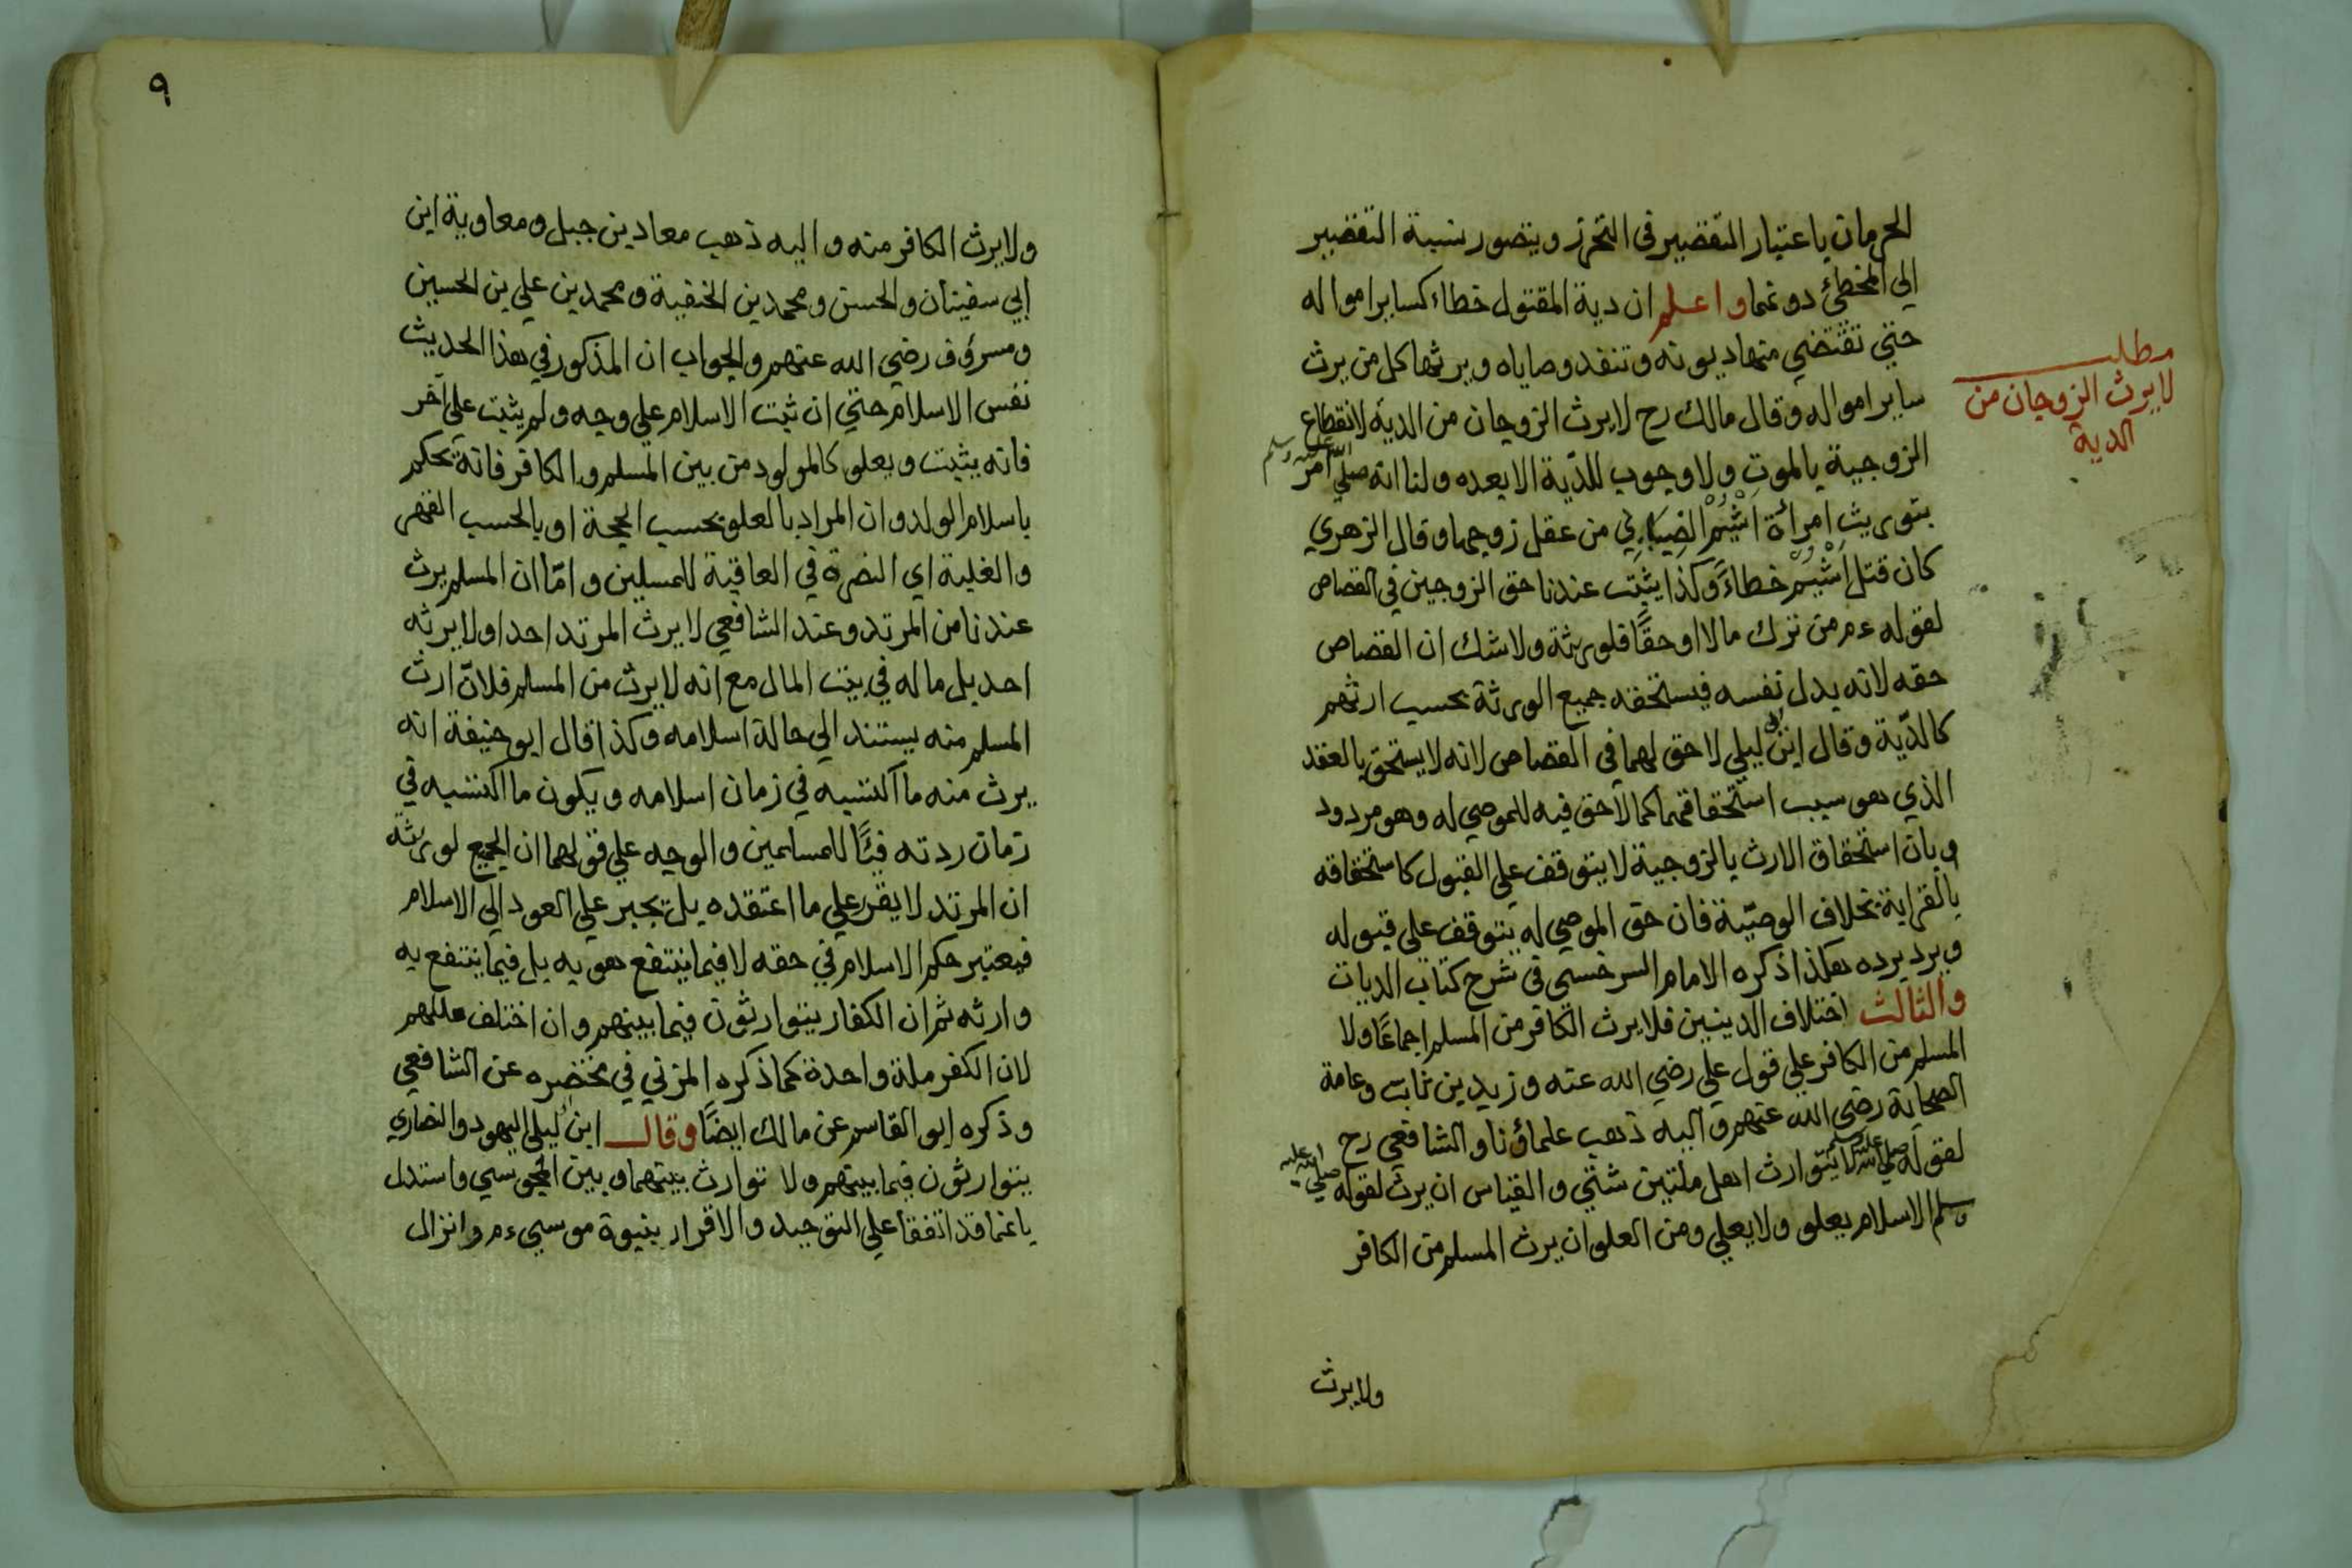 الحرمان باعتبار التقصير في التحرز ويتصور نسبة التقصير
الى المخطئ دونهما واعلم ان دية المقتول خطاء كساير امواله
حتي تقتضي منها ديونه وتنفد وصاياه ويرثها كل من يرث
ساير امواله وقال مالك رح لا يرث الزوجان من الدية لانقطاع
الزوجية بالموت ولا وجوب للدّية الا بعده ولنا انه صلي الله عليه وسلم امر
بتوريث امرأة اَشْيُمْ الضِبَابِي من عقل زوجها وقال الزهري
كان قتل اَشْيُمْ خطاءً وكذا يثبت عندنا حق الزوجين في القصاص
لقوله ءم من ترك مالا او حقًا فلورثة ولا شك ان القصاص
حقه لانه بدل نفسه فيستحقه جميع الورثة بحسب ارثهم
كالدّية وقال ابن ابي ليلي لا حق لهما في القصاص لانه لا يستحق بالعقد
الذي هو سبب استحقاقهما كما لا حق فيه للموصي له وهو مردود
وبان استحقاق الارث بالزوجية لا يتوقف علي القبول كاستحقاقه
بالقرابة بخلاف الوصيّة فان حق الموصي له يتوقف على قبوله
ويرد برده هكذا ذكره الامام السرخسي في شرح كتاب الديات
والثالث اختلاف الدينين فلا يرث الكافر من المسلم اجماعًا ولا
المسلم من الكافر علي قول علي رضي الله عنه وزيد بن ثابت وعامة
الصحابة رضي الله عنهم واليه ذهب علماؤنا والشافعي رح
لقوله صلي الله عليه وسلم لا يتوارث اهل ملتين شتي والقياس ان يرث لقوله صلي الله عليه
وسلم الاسلام يعلو ولا يعلي ومن العلو ان يرث المسلم من الكافر
ولا يرث
مطلب
لا يرث الزوجان من
الدية
٩
ولا يرث الكافر منه واليه ذهب معاذ بن جبل ومعاوية ابن
ابي سفينان والحسن ومحمد بن الحنفية ومحمد بن علي بن الحسين
ومسروق رضي الله عنهم والجواب ان المذكور في هذا الحديث
نفس الاسلام حتي ان ثبت الاسلام علي وجه ولم يثبت علي آخر
فانه يثبت ويعلو كالمولود من بين المسلم والكافر فانه يحكم
باسلام الولد وان المراد بالعلو بحسب الحجة او بالحسب القهر
والغلبة اي النصرة في العاقبة للمسلين وامّا ان المسلم يرث
عندنا من المرتد وعند الشافعي لا يرث المرتد احدا ولا يرثه
احد بل ماله في بيت المال مع انه لا يرث من المسلم فلانّ ارث
المسلم منه يستند الي حالة اسلامه وكذا قال ابو حنيفة انه
يرث منه ما اكتسبه في زمان اسلامه ويكون ما اكتسبه في
زمان ردته فيئًا للمسلمين والوجه علي قولهما ان الجمع لورثة
ان المرتد لا يقر علي ما اعتقده بل يجبر علي العود الي الاسلام
فيعتبر حكم الاسلام في حقه لا فيما ينتفع هو به بل فيما ينتفع به
وارثه ثم ان الكفار يتوارثون فيما بينهم وان اختلف مللهم
لان الكفر ملة واحدة كما ذكره المزني في مختصره عن الشافعي
وذكره ابو القاسم عن مالك ايضًا وقال ابن ابي ليلي اليهود والنصاري
يتوارثون فيما بينهم ولا توارث بينهما وبين المجوسي واستدل
بانهما قد اتفقا علي التوحيد والاقرار بنبوة موسي ءم وانزال